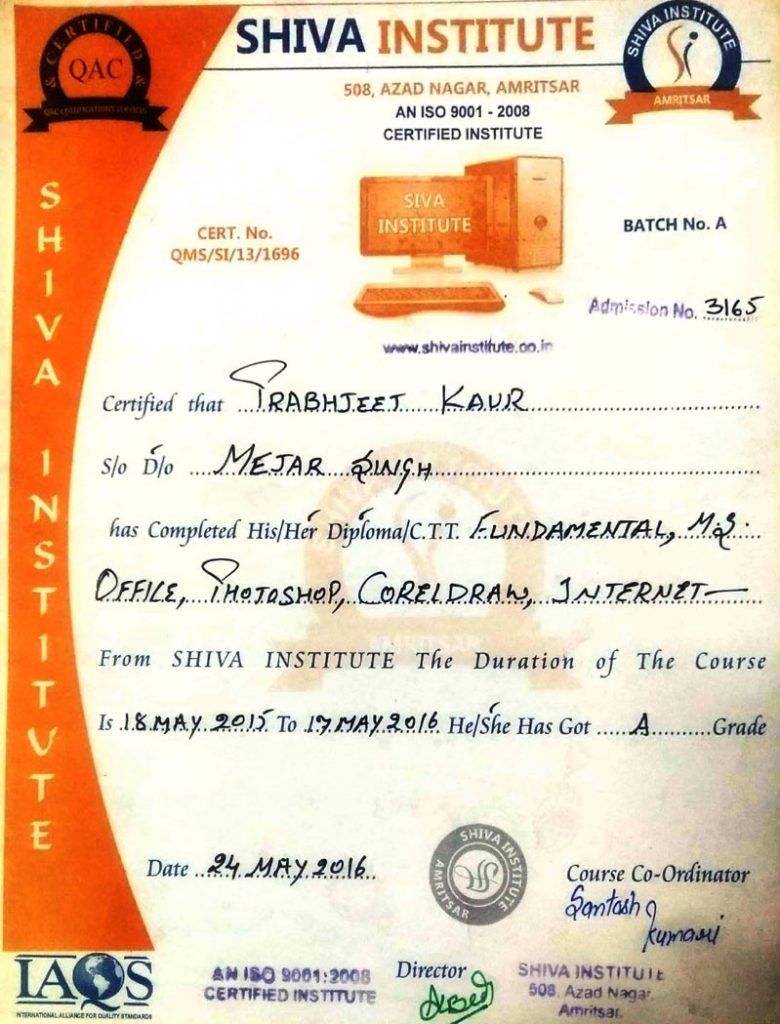 CERTIFIED & &
QAC
QAC CERTIFICATIONS SERVICES
SHIVA INSTITUTE
SHIVA INSTITUTE
Si
AMRITSAR
508, AZAD NAGAR, AMRITSAR
AN ISO 9001 - 2008
CERTIFIED INSTITUTE
SIVA
INSTITUTE
CERT. No.
QMS/SI/13/1696
BATCH No. A
Admission No. 3165
www.shivainstitute.co.in
SHIVA INSTITUTE
Certified that PRABHJEET KAUR
S/o D/o MEJAR SINGH
has Completed His/Her Diploma/C.T.T. FUNDAMENTAL, M.S.
OFFICE, PHOTOSHOP, CORELDRAW, INTERNET
From SHIVA INSTITUTE The Duration of The Course
Is 18 MAY 2015 To 17 MAY 2016 He/She Has Got A Grade
SHIVA INSTITUTE
AMRITSAR
SHIVA INSTITUTE
AMRITSAR
Date 24 MAY 2016
Course Co-Ordinator
Santosh Kumari
IAQS
INTERNATIONAL ALLIANCE FOR QUALITY STANDARDS
AN ISO 9001:2008
CERTIFIED INSTITUTE
Director
SHIVA INSTITUTE
508, Azad Nagar,
Amritsar.